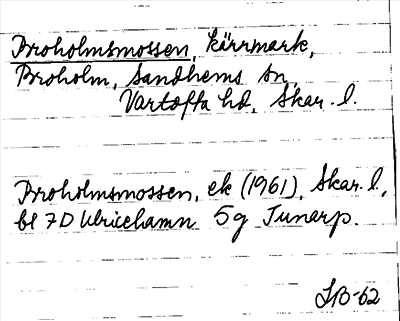 Broholmsmossen, kärrmark,
Broholm, Sandhems sn,
Vartofta hd, Skar. l.
Broholmsmossen, ek (1961), Skar. l.,
bl 7D Ulricehamn 5g Tunarp.
LB-62